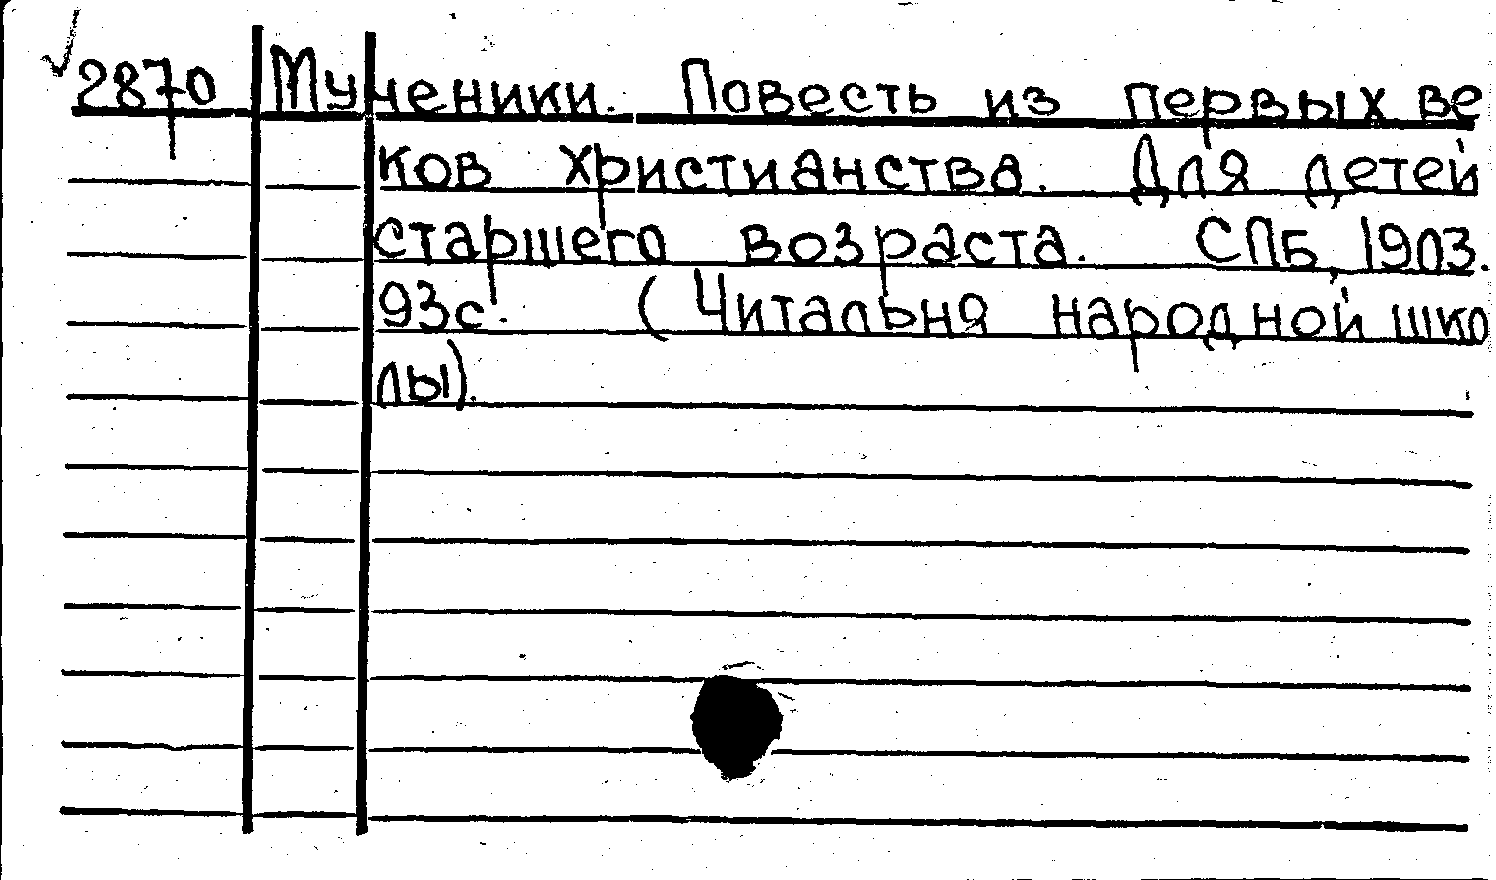 2870 Мученики. Повесть из первых ве
ков христианства. Для детей
старшего возраста. СПБ, 1903.
93с. (Читальня народной шко
лы).